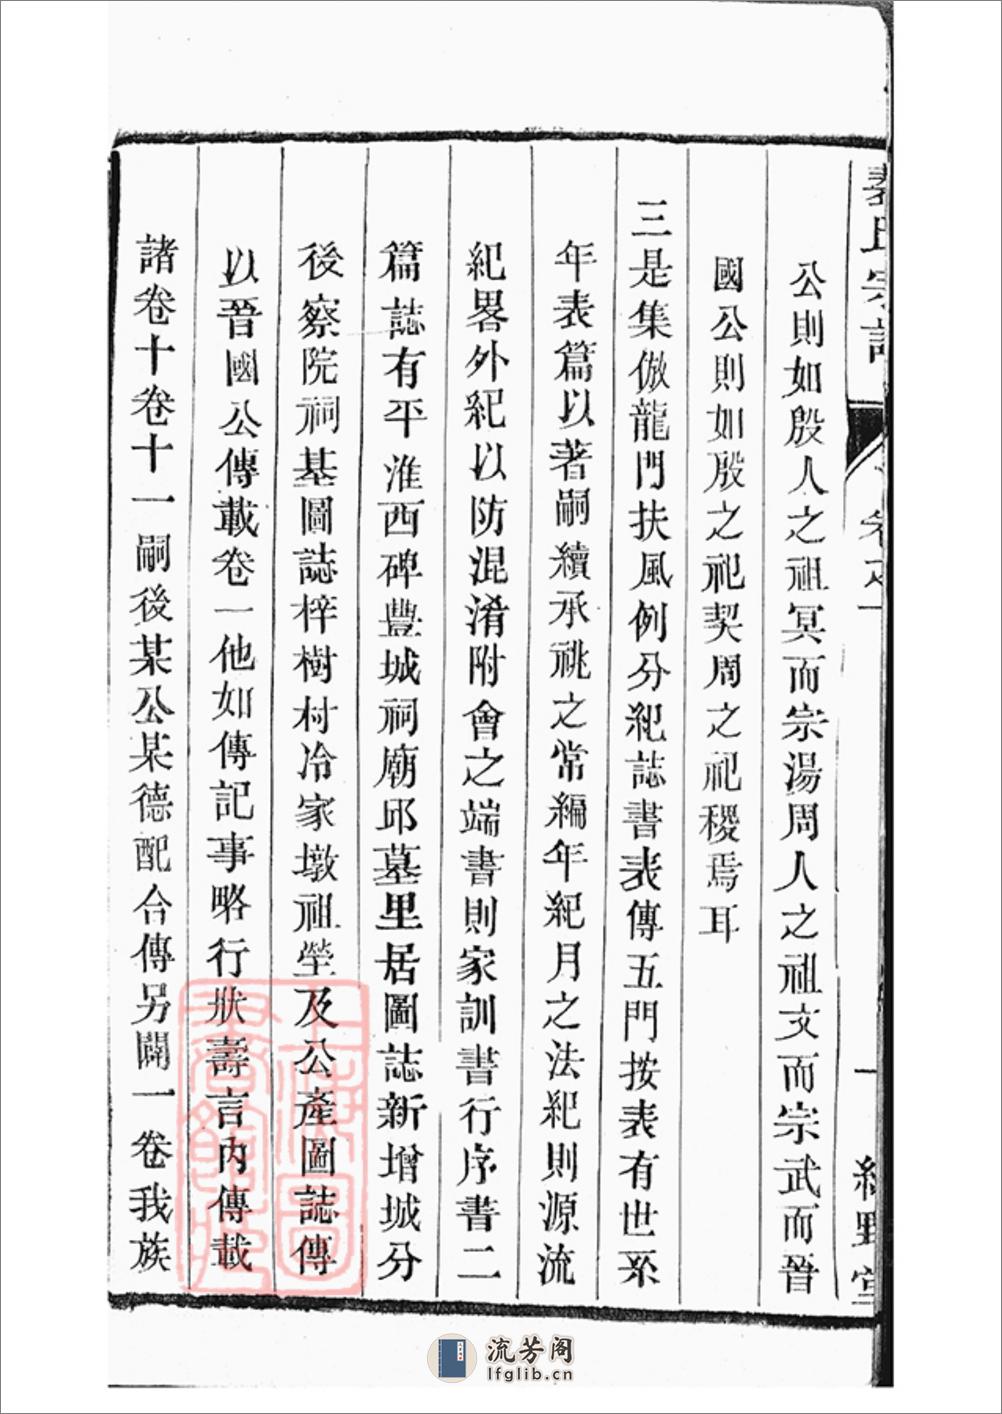 公則如殷人之祖冥而宗湯周人之祖文而宗武而晉
國公則如殷之祀契周之祀稷焉耳
三是集倣龍門扶風例分紀誌書表傳五門按表有世系
年表篇以著嗣續承祧之常編年紀月之法紀則源流
紀畧外紀以防混淆附會之端書則家訓書行序書二
篇誌有平淮西碑豐城祠廟邱墓里居圖誌新增城分
後察院祠基圖誌梓樹村冷家墩祖塋及公產圖誌傳
以晉國公傳載卷一他如傳記事略行狀壽言內傳載
諸卷十卷十一嗣後某公某德配合傳另闢一卷我族
上海圖書館藏
流芳阁
lfglib.cn